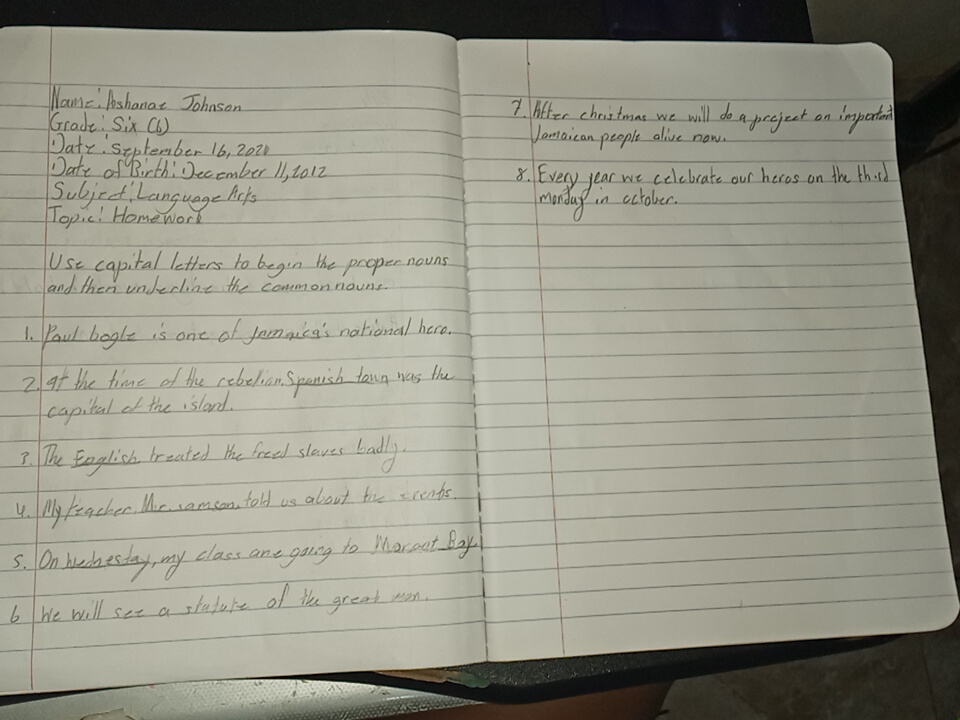 Name: Ashanae Johnson
Grade: Six (6)
Date: September 16, 2020
Date of Birth: December 11, 2012
Subject: Language Arts
Topic: Homework
Use capital letters to begin the proper nouns
and then underline the common nouns.
1. Paul bogle is one of Jamaica's national hero.
2. At the time of the rebelion, Spanish town was the
capital of the island.
3. The English treated the freed slaves badly.
4. My teacher Mr. samson told us about the events
5. On wednesday, my class are going to Morant Bay.
6 We will see a statute of the great man.
7. After christmas we will do a project on important
Jamaican people alive now.
8. Every year we celebrate our heros on the third
monday in october.